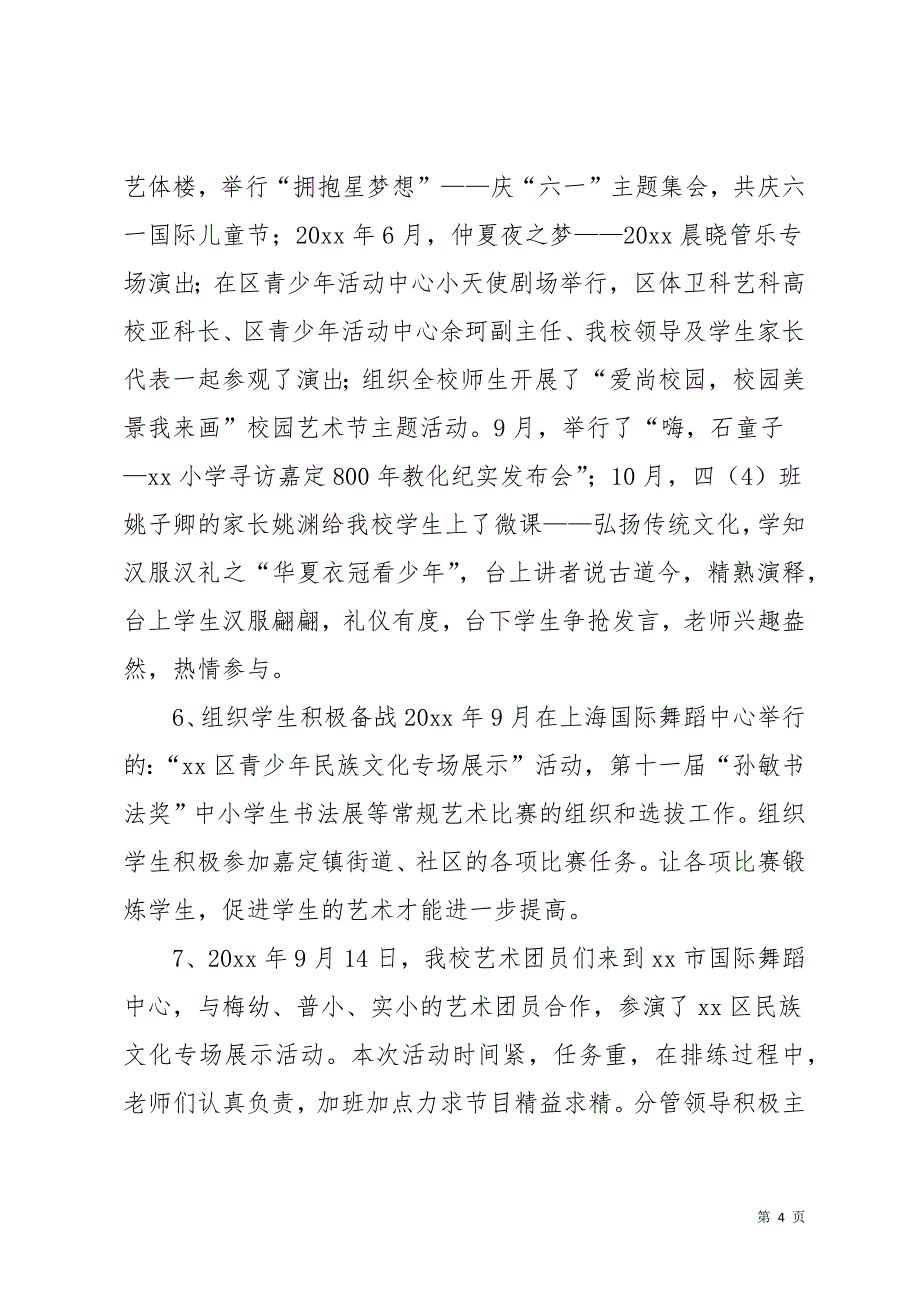 艺体楼，举行“拥抱星梦想”——庆“六一”主题集会，共庆六
一国际儿童节；20xx 年 6 月，仲夏夜之梦——20xx 晨晓管乐专
场演出；在区青少年活动中心小天使剧场举行，区体卫科艺科高
校亚科长、区青少年活动中心余珂副主任、我校领导及学生家长
代表一起参观了演出；组织全校师生开展了“爱尚校园，校园美
景我来画”校园艺术节主题活动。9 月，举行了“嗨，石童子
—xx 小学寻访嘉定 800 年教化纪实发布会”；10 月，四（4）班
姚子卿的家长姚渊给我校学生上了微课——弘扬传统文化，学知
汉服汉礼之“华夏衣冠看少年”，台上讲者说古道今，精熟演释，
台上学生汉服翩翩，礼仪有度，台下学生争抢发言，老师兴趣盎
然，热情参与。
6、组织学生积极备战 20xx 年 9 月在上海国际舞蹈中心举行
的：“xx 区青少年民族文化专场展示”活动，第十一届“孙敏书
法奖”中小学生书法展等常规艺术比赛的组织和选拔工作。组织
学生积极参加嘉定镇街道、社区的各项比赛任务。让各项比赛锻
炼学生，促进学生的艺术才能进一步提高。
7、20xx 年 9 月 14 日，我校艺术团员们来到 xx 市国际舞蹈
中心，与梅幼、普小、实小的艺术团员合作，参演了 xx 区民族
文化专场展示活动。本次活动时间紧，任务重，在排练过程中，
老师们认真负责，加班加点力求节目精益求精。分管领导积极主
第 4 页